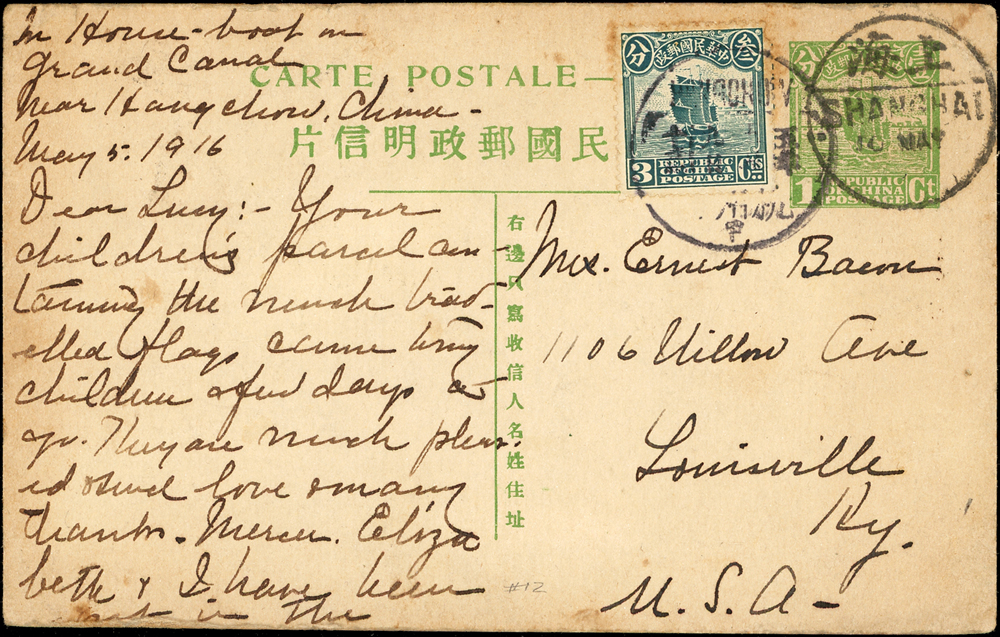 In House-boat on
Grand Canal
near Hangchow, China-
May 5. 1916
Dear Lucy:- Your
children's parcel con-
taining the much trav-
elled flags came to my
children a few days a-
go. They are much pleas-
ed & send love & many
thanks. Mercer, Eliza
beth & I have been
out in the
CARTE POSTALE—
民國郵政明信片
右邊只寫收信人名姓住址
中華民國郵政
叁
分
3 Cts
REPUBLIC
OF CHINA
POSTAGE
壹
分
1 Ct
REPUBLIC
OF CHINA
POSTAGE
上海
SHANGHAI
10 MAY
Mrs. Ernest Bacon
1106 Willow Ave
Louisville
Ky.
U.S.A-
#12